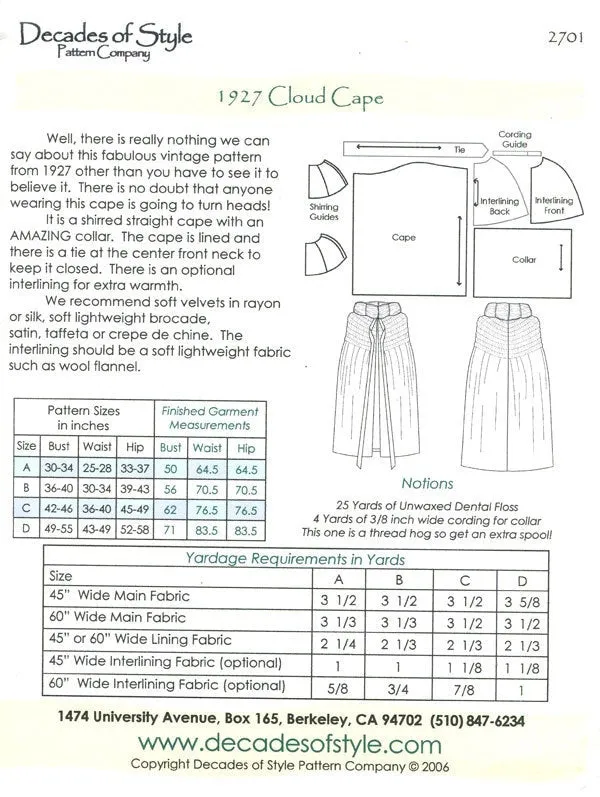 Decades of Style
Pattern Company
2701
1927 Cloud Cape
Well, there is really nothing we can
say about this fabulous vintage pattern
from 1927 other than you have to see it to
believe it. There is no doubt that anyone
wearing this cape is going to turn heads!
It is a shirred straight cape with an
AMAZING collar. The cape is lined and
there is a tie at the center front neck to
keep it closed. There is an optional
interlining for extra warmth.
We recommend soft velvets in rayon
or silk, soft lightweight brocade,
satin, taffeta or crepe de chine. The
interlining should be a soft lightweight fabric
such as wool flannel.
Tie
Cording
Guide
Shirring
Guides
Cape
Interlining
Back
Interlining
Front
Collar
Pattern Sizes
in inches
Finished Garment
Measurements
Size Bust Waist Hip Bust Waist Hip
A 30-34 25-28 33-37 50 64.5 64.5
B 36-40 30-34 39-43 56 70.5 70.5
C 42-46 36-40 45-49 62 76.5 76.5
D 49-55 43-49 52-58 71 83.5 83.5
Notions
25 Yards of Unwaxed Dental Floss
4 Yards of 3/8 inch wide cording for collar
This one is a thread hog so get an extra spool!
Yardage Requirements in Yards
Size A B C D
45" Wide Main Fabric 3 1/2 3 1/2 3 1/2 3 5/8
60" Wide Main Fabric 3 1/3 3 1/3 3 1/2 3 1/2
45" or 60" Wide Lining Fabric 2 1/4 2 1/3 2 1/3 2 1/3
45" Wide Interlining Fabric (optional) 1 1 1 1/8 1 1/8
60" Wide Interlining Fabric (optional) 5/8 3/4 7/8 1
1474 University Avenue, Box 165, Berkeley, CA 94702 (510) 847-6234
www.decadesofstyle.com
Copyright Decades of Style Pattern Company © 2006